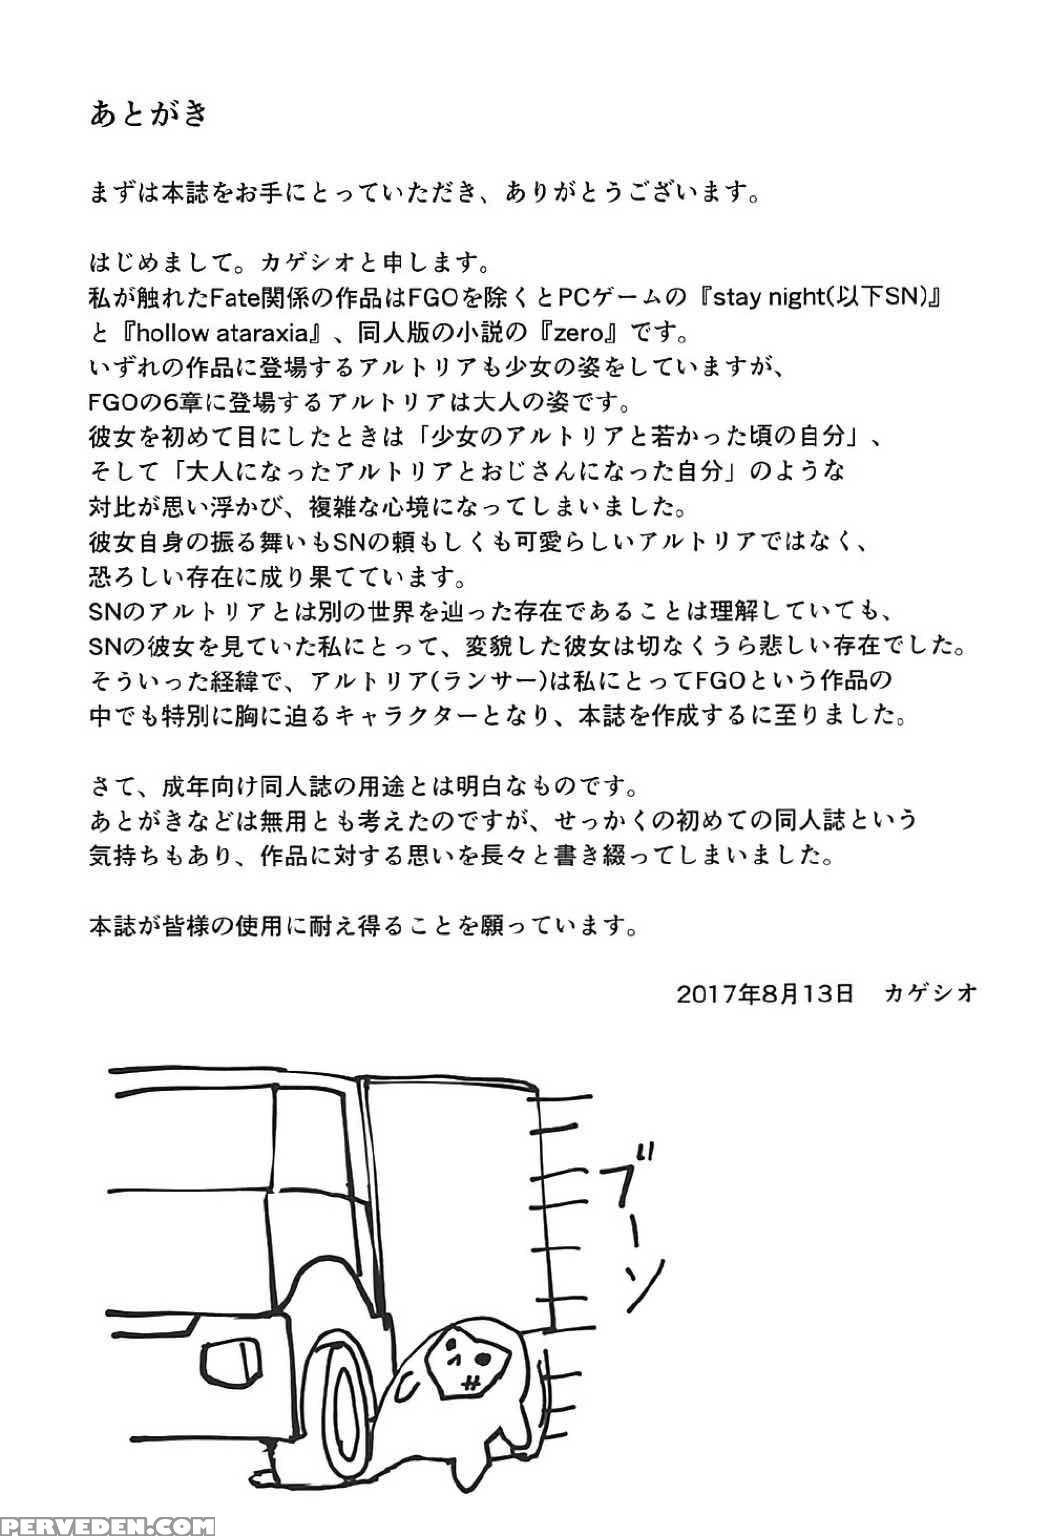 あとがき
まずは本誌をお手にとっていただき、ありがとうございます。
はじめまして。カゲシオと申します。
私が触れたFate関係の作品はFGOを除くとPCゲームの『stay night(以下SN)』
と『hollow ataraxia』、同人版の小説の『zero』です。
いずれの作品に登場するアルトリアも少女の姿をしていますが、
FGOの6章に登場するアルトリアは大人の姿です。
彼女を初めて目にしたときは「少女のアルトリアと若かった頃の自分」、
そして「大人になったアルトリアとおじさんになった自分」のような
対比が思い浮かび、複雑な心境になってしまいました。
彼女自身の振る舞いもSNの頼もしくも可愛らしいアルトリアではなく、
恐ろしい存在に成り果てています。
SNのアルトリアとは別の世界を辿った存在であることは理解していても、
SNの彼女を見ていた私にとって、変貌した彼女は切なくうら悲しい存在でした。
そういった経緯で、アルトリア(ランサー)は私にとってFGOという作品の
中でも特別に胸に迫るキャラクターとなり、本誌を作成するに至りました。
さて、成年向け同人誌の用途とは明白なものです。
あとがきなどは無用とも考えたのですが、せっかくの初めての同人誌という
気持ちもあり、作品に対する思いを長々と書き綴ってしまいました。
本誌が皆様の使用に耐え得ることを願っています。
2017年8月13日　カゲシオ
ブーン
PERVEDEN.COM